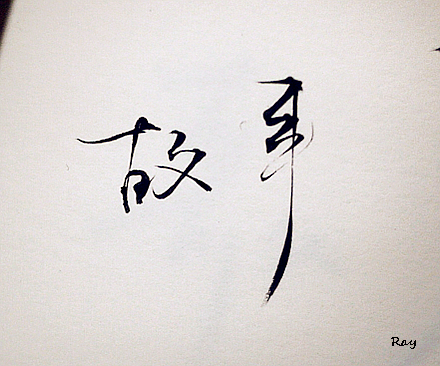 故事
Ray